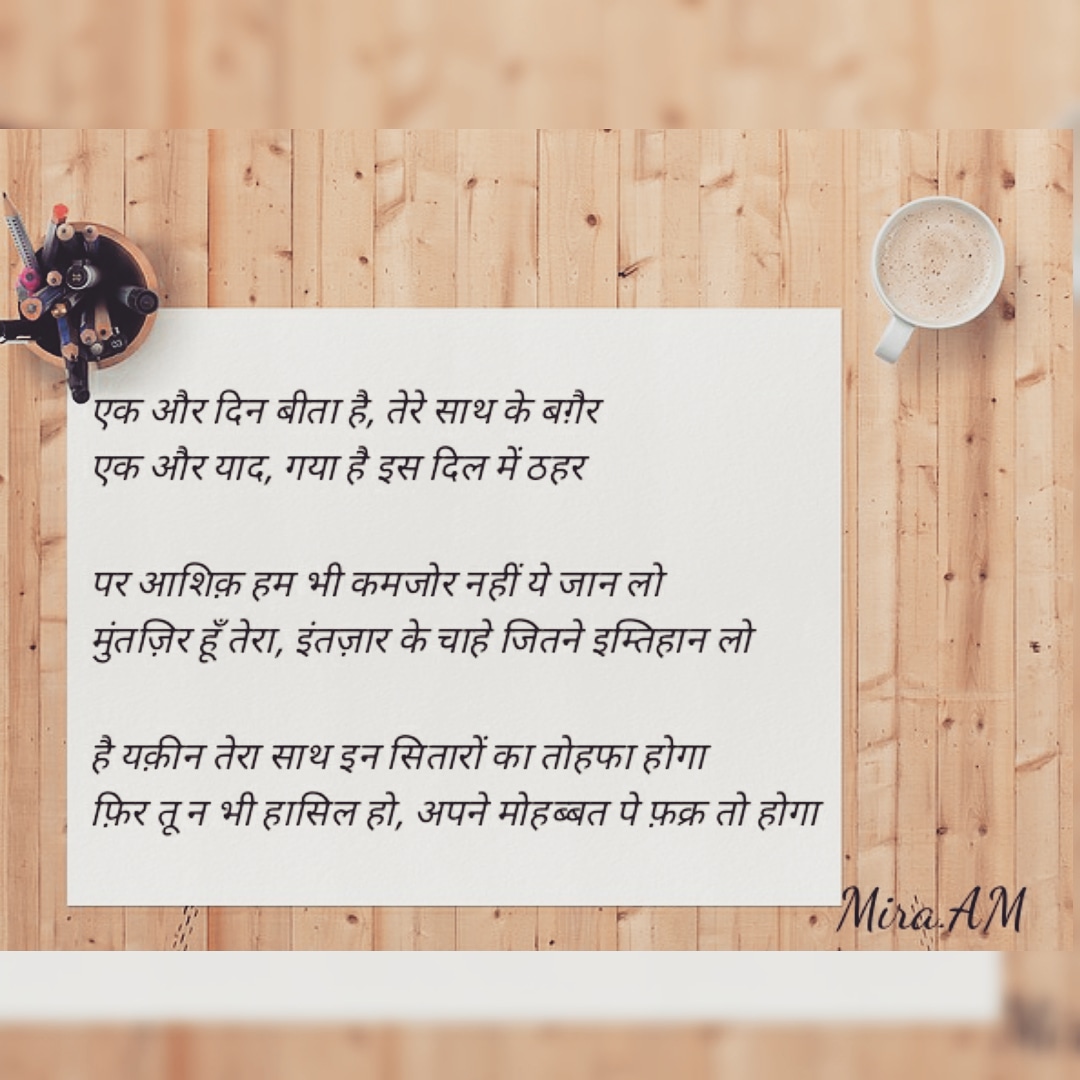 एक और दिन बीता है, तेरे साथ के बग़ैर
एक और याद, गया है इस दिल में ठहर
पर आशिक़ हम भी कमजोर नहीं ये जान लो
मुंतज़िर हूँ तेरा, इंतज़ार के चाहे जितने इम्तिहान लो
है यक़ीन तेरा साथ इन सितारों का तोहफा होगा
फ़िर तू न भी हासिल हो, अपने मोहब्बत पे फ़क्र तो होगा
Mira.AM